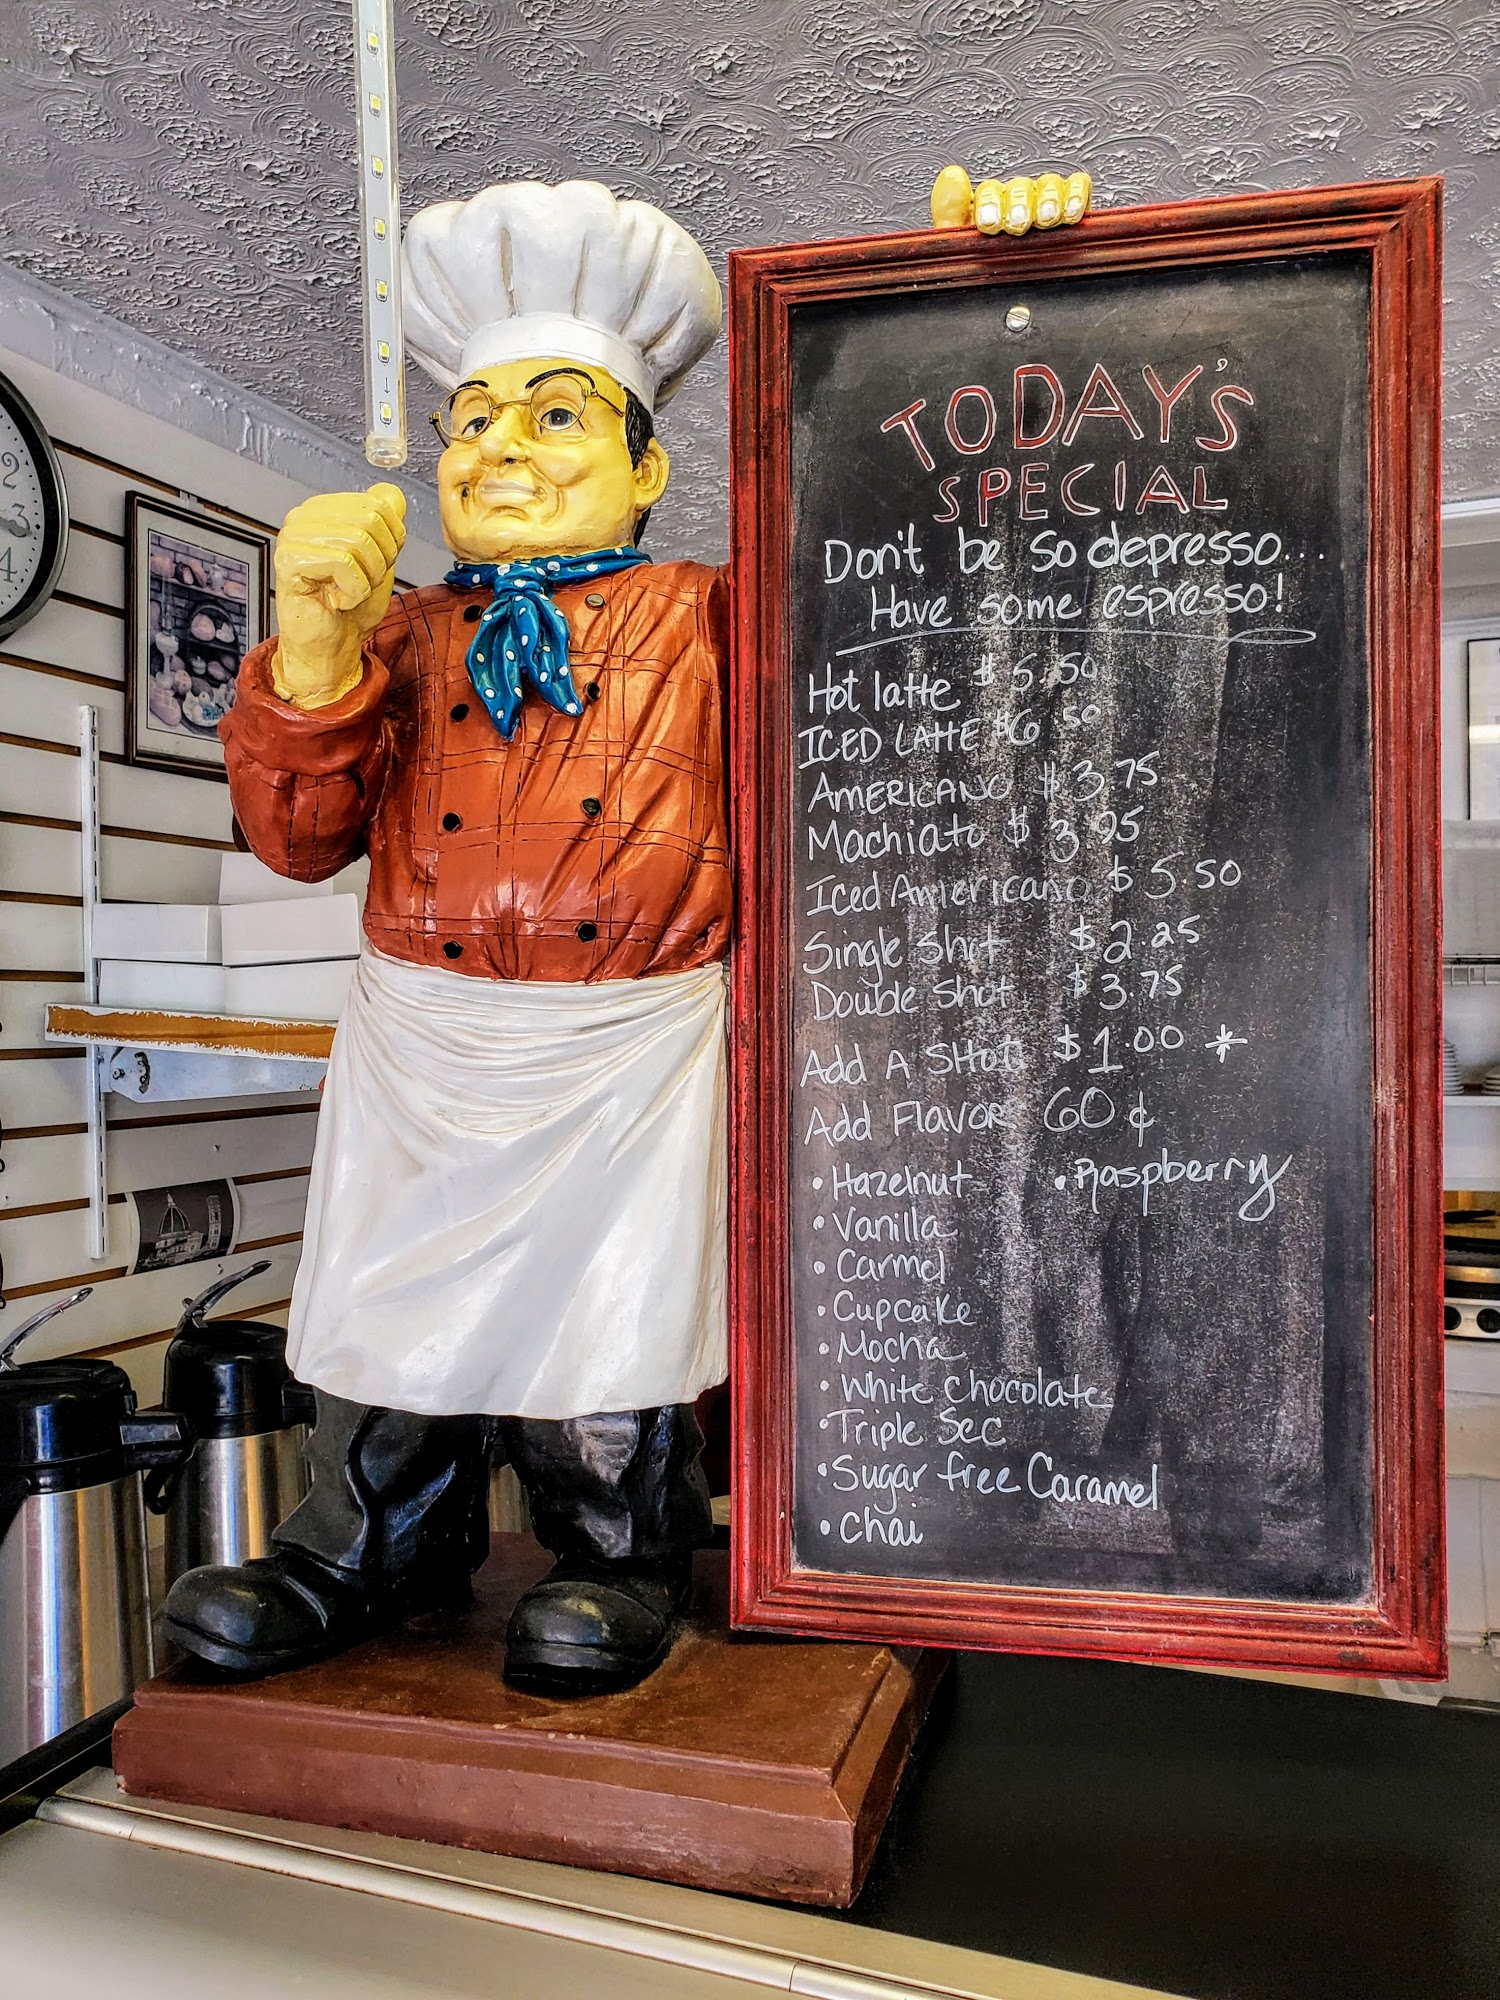 2
3
4
TODAY'S
SPECIAL
Don't be so depresso...
Have some espresso!
Hot latte $5.50
ICED LATTE $6.50
AMERICANO $3.75
Machiato $3.95
Iced Americano $5.50
Single Shot $2.25
Double Shot $3.75
Add A SHot $1.00 *
Add Flavor 60¢
• Hazelnut • Raspberry
• Vanilla
• Carmel
• Cupcake
• Mocha
• White Chocolate
• Triple Sec
• Sugar free Caramel
• Chai